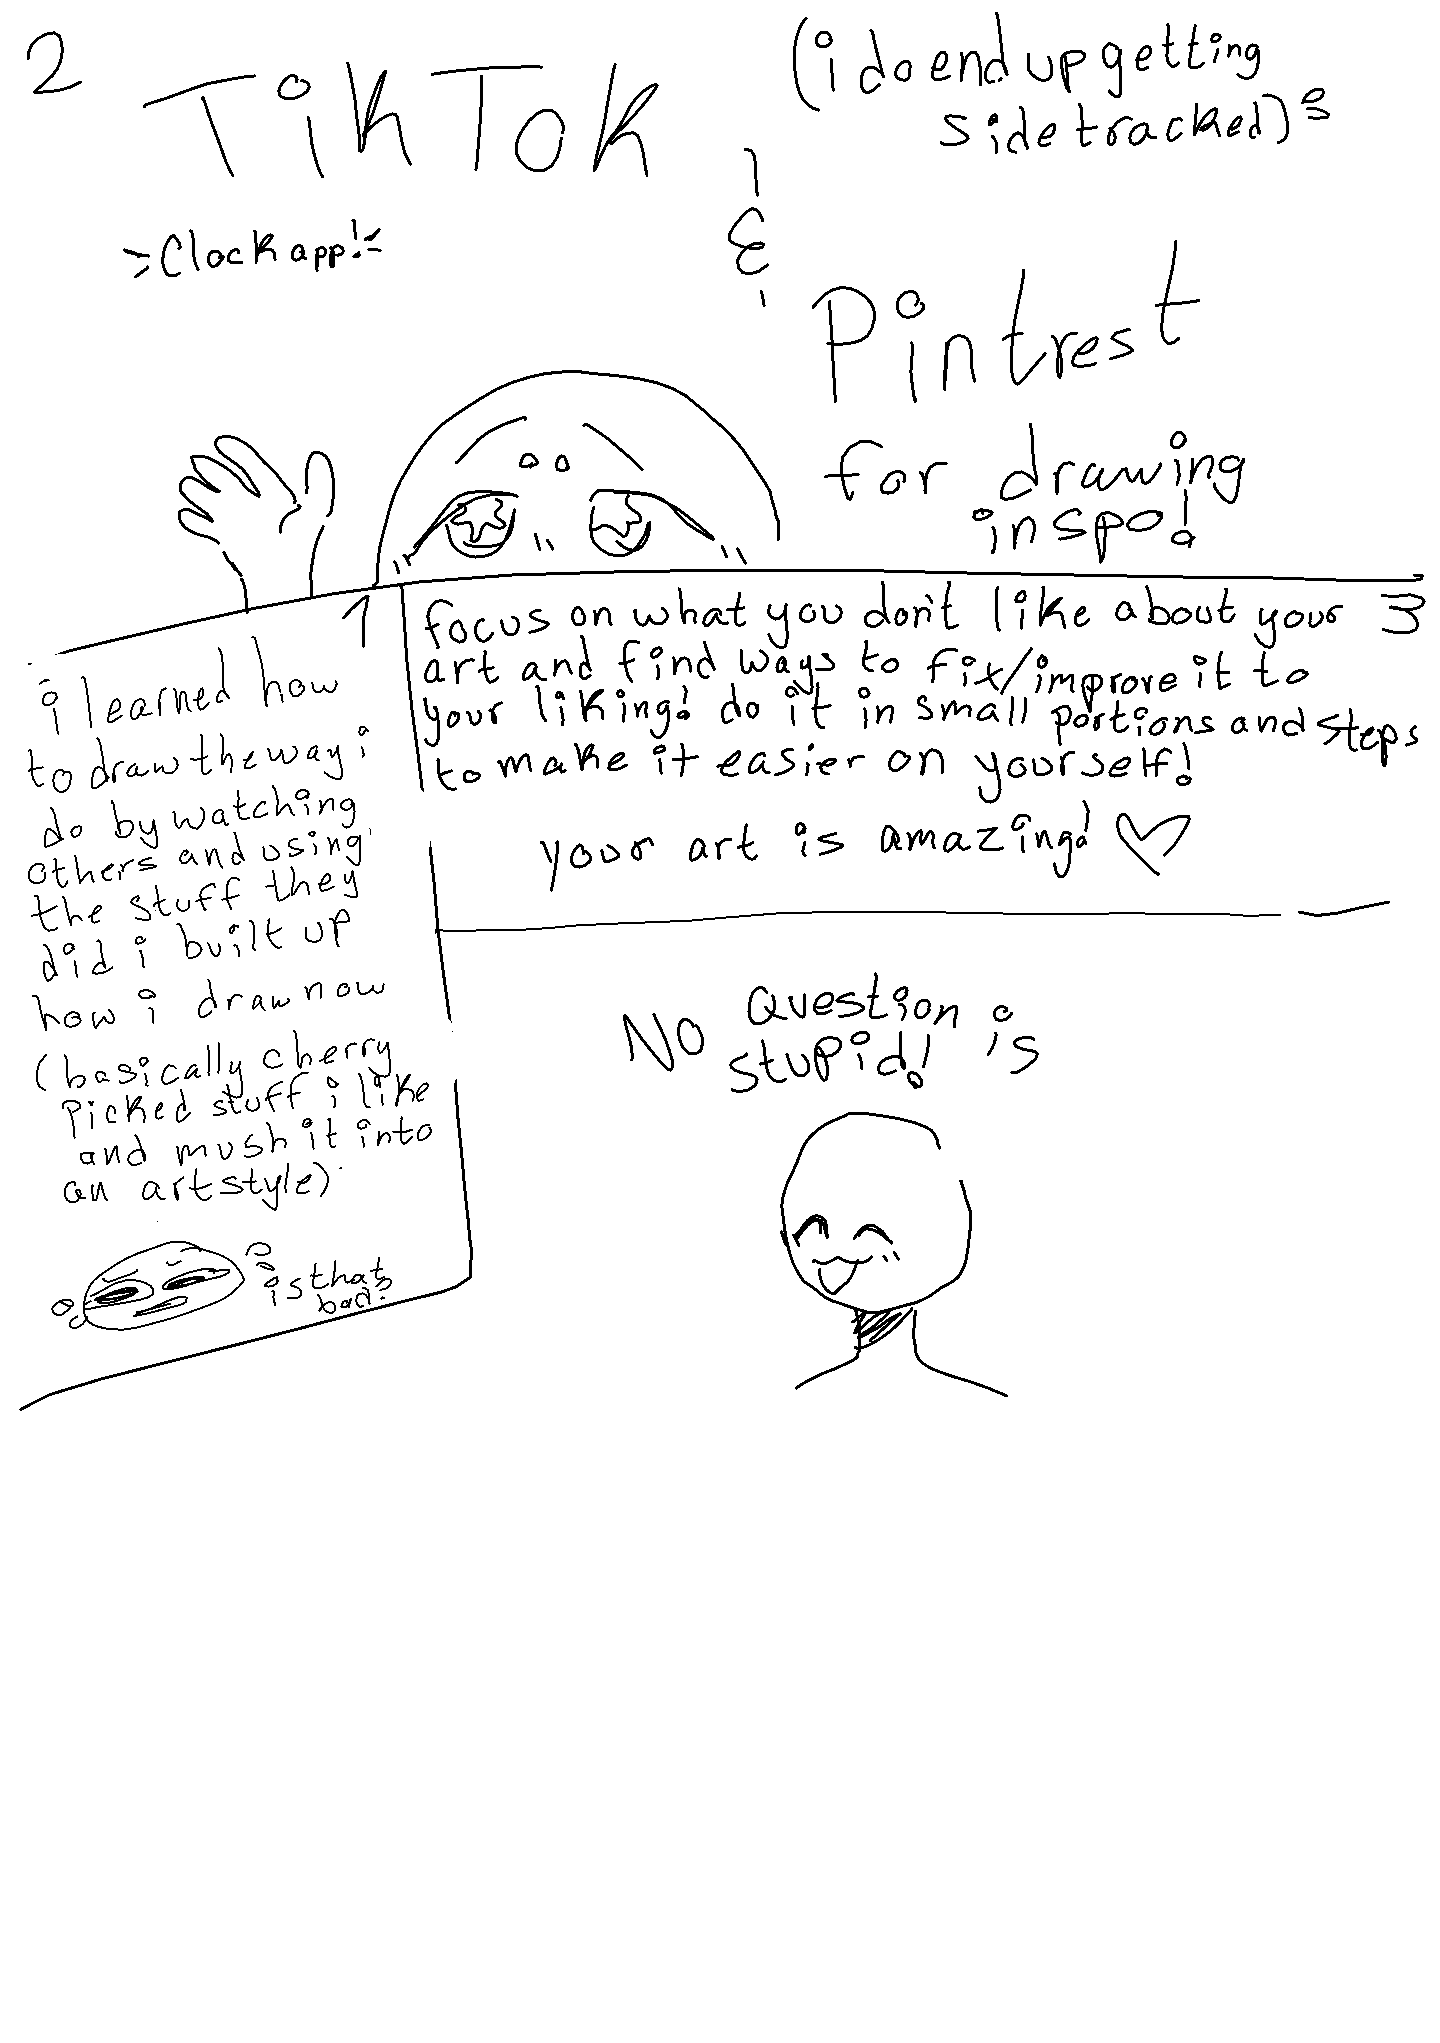 2
TikTok
(i do end up getting
side tracked) :
=Clock app!=
&
Pintrest
for drawing
inspo!
1
i learned how
to draw the way i
do by watching
others and using
the stuff they
did i built up
how i draw now
(basically cherry
picked stuff i like
and mush it into
an artstyle)
is that
bad?
3
focus on what you don't like about your
art and find ways to fix/improve it to
your liking! do it in small portions and steps
to make it easier on yourself!
your art is amazing! ♡
No Question is
stupid!